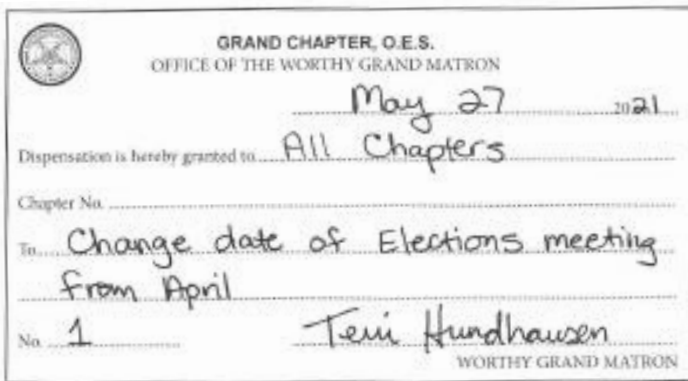 GRAND CHAPTER, O.E.S.
OFFICE OF THE WORTHY GRAND MATRON
May 27 2021
Dispensation is hereby granted to All Chapters
Chapter No.
To Change date of Elections meeting
from April
No. 1 Teri Hundhausen
WORTHY GRAND MATRON